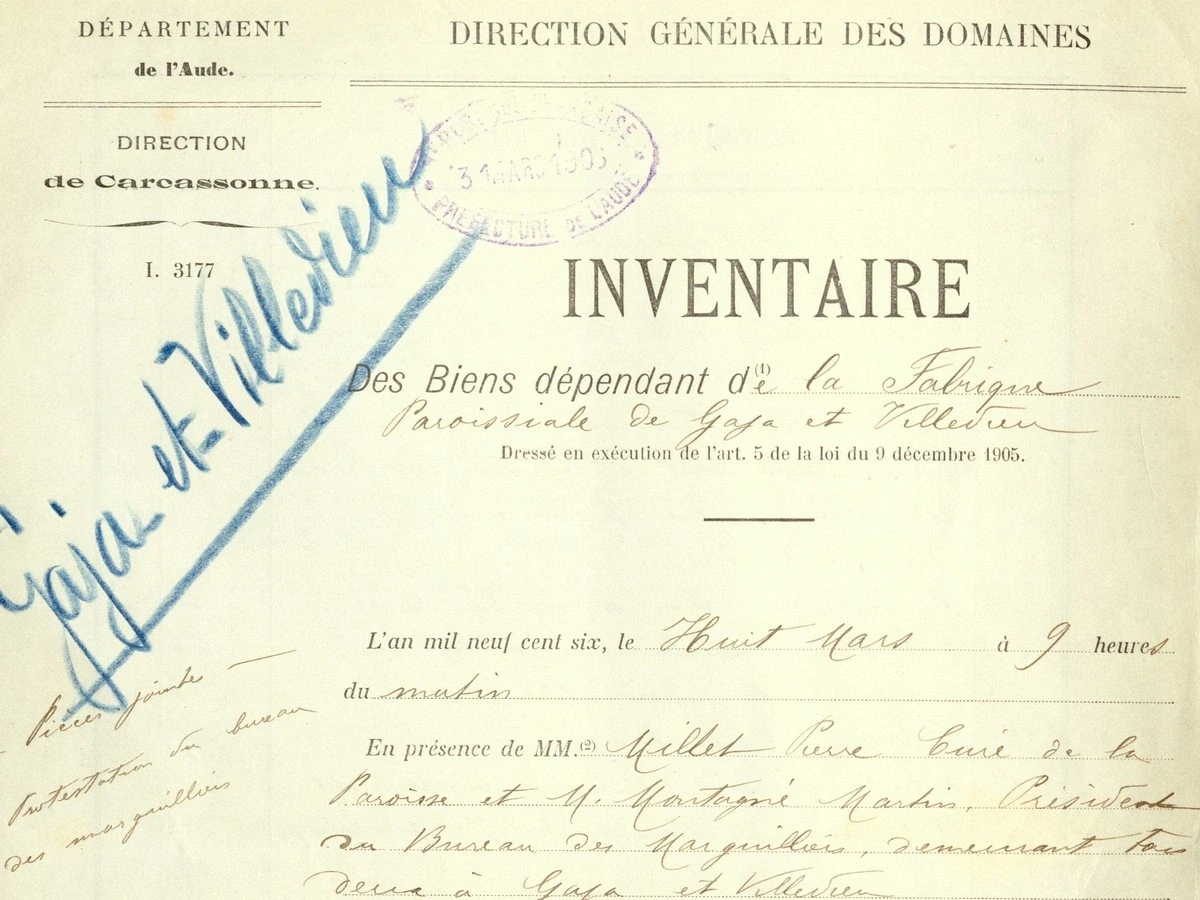 DÉPARTEMENT
de l'Aude.
DIRECTION
de Carcassonne.
I. 3177
Gaja et Villedieu
DIRECTION GÉNÉRALE DES DOMAINES
RÉPUBLIQUE FRANÇAISE
31 MARS 190
PRÉFECTURE DE L'AUDE
INVENTAIRE
Des Biens dépendant d(1)e la Fabrique
Paroissiale de Gaja et Villedieu
Dressé en exécution de l'art. 5 de la loi du 9 décembre 1905.
L'an mil neuf cent six, le Huit Mars à 9 heures
du matin
En présence de MM.(2) Millet Pierre Curé de la
Paroisse et M. Montagné Martin, Président
du Bureau des Marguilliers, demeurant tous
deux à Gaja et Villedieu
Pièces jointes
Protestation du bureau
des marguilliers